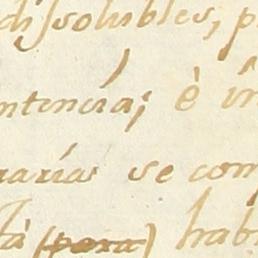 dissolubles, p
ntencia; è in
rarias se com
tà (pera) hab